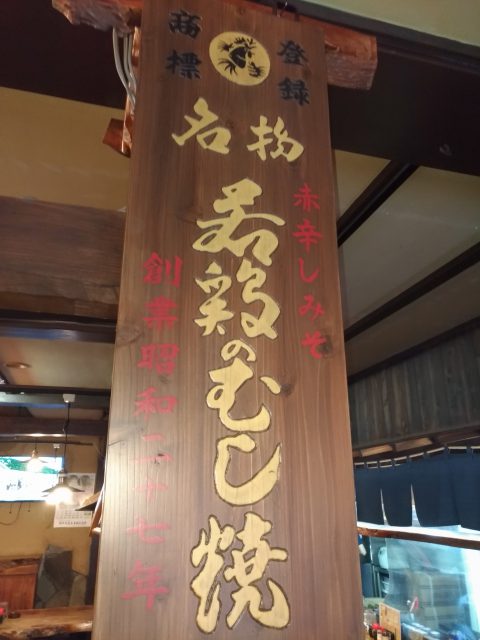 登録
商標
名物
赤辛しみそ
若鶏のむし焼
創業昭和二十七年